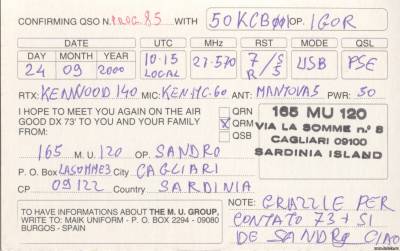 CONFIRMING QSO N. PROG. 85 WITH 50KCB00 OP. IGOR
DATE UTC MHz RST MODE QSL
DAY MONTH YEAR
24 09 2000 10.15 LOCAL 27.570 R/5 7/S USB PSE
RTX: KENWOOD 140 MIC: KEN-MC.60 ANT: MANTOVA5 PWR: 50
I HOPE TO MEET YOU AGAIN ON THE AIR
GOOD DX 73' TO YOU AND YOUR FAMILY
FROM:
QRN
QRM
QSB
165 MU 120
VIA LA SOMME n.° 8
CAGLIARI 09100
SARDINIA ISLAND
165 M. U. 120 OP. SANDRO
P. O. Box LASOMME3 City CAGLIARI
CP 09122 Country SARDINIA
TO HAVE INFORMATIONS ABOUT THE M. U. GROUP,
WRITE TO: MAIK UNIFORM - P. O. BOX 2294 - 09080
BURGOS - SPAIN
NOTE: GRAZZIE PER
CONTATO 73+51
DE SANDRO CIAO